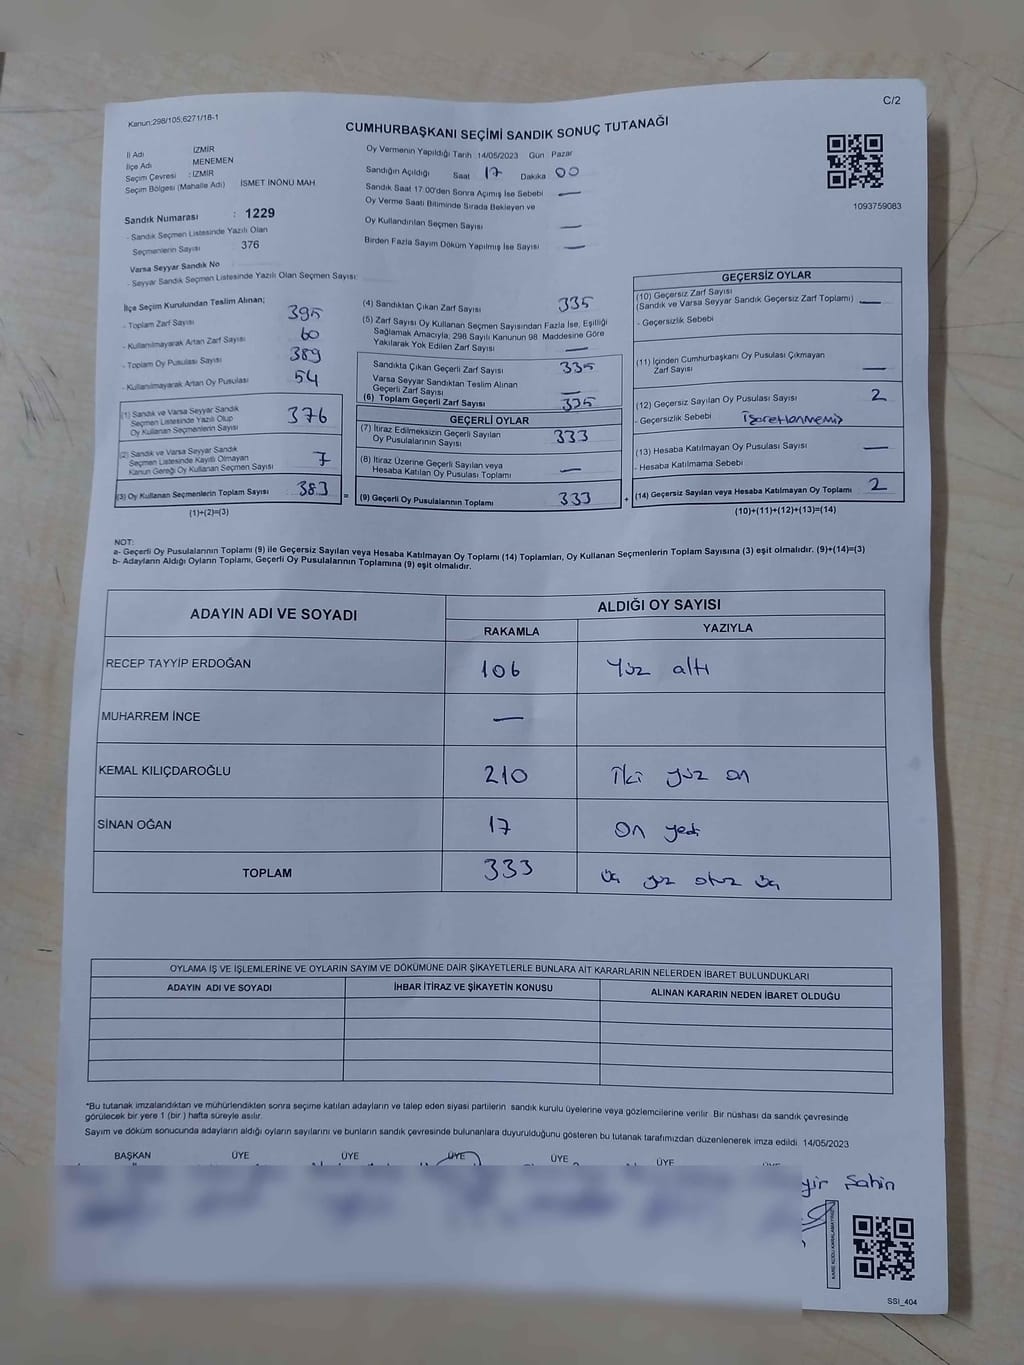 C/2
Kanun:298/105;6271/18-1
CUMHURBAŞKANI SEÇİMİ SANDIK SONUÇ TUTANAĞI
İl Adı İZMİR
İlçe Adı MENEMEN
Seçim Çevresi : İZMİR
Seçim Bölgesi (Mahalle Adı) İSMET İNÖNÜ MAH.
Sandık Numarası : 1229
- Sandık Seçmen Listesinde Yazılı Olan
Seçmenlerin Sayısı 376
Varsa Seyyar Sandık No
- Seyyar Sandık Seçmen Listesinde Yazılı Olan Seçmen Sayısı:
Oy Vermenin Yapıldığı Tarih 14/05/2023 Gün Pazar
Sandığın Açıldığı Saat 17 Dakika 00
Sandık Saat 17:00'den Sonra Açımış İse Sebebi —
Oy Verme Saati Bitiminde Sırada Bekleyen ve
Oy Kullandırılan Seçmen Sayısı —
Birden Fazla Sayım Döküm Yapılmış İse Sayısı —
1093759083
İlçe Seçim Kurulundan Teslim Alınan;
- Toplam Zarf Sayısı 395
- Kullanılmayarak Artan Zarf Sayısı 60
- Toplam Oy Pusulası Sayısı 389
- Kullanılmayarak Artan Oy Pusulası 54
(1) Sandık ve Varsa Seyyar Sandık
Seçmen Listesinde Yazılı Olup
Oy Kullanan Seçmenlerin Sayısı 376
(2) Sandık ve Varsa Seyyar Sandık
Seçmen Listesinde Kayıtlı Olmayan
Kanun Gereği Oy Kullanan Seçmen Sayısı 7
(3) Oy Kullanan Seçmenlerin Toplam Sayısı 383 =
(1)+(2)=(3)
(4) Sandıktan Çıkan Zarf Sayısı 335
(5) Zarf Sayısı Oy Kullanan Seçmen Sayısından Fazla İse, Eşitliği
Sağlamak Amacıyla; 298 Sayılı Kanunun 98. Maddesine Göre
Yakılarak Yok Edilen Zarf Sayısı —
Sandıkta Çıkan Geçerli Zarf Sayısı 335
Varsa Seyyar Sandıktan Teslim Alınan
Geçerli Zarf Sayısı —
(6) Toplam Geçerli Zarf Sayısı 335
GEÇERLİ OYLAR
(7) İtiraz Edilmeksizin Geçerli Sayılan
Oy Pusulalarının Sayısı 333
(8) İtiraz Üzerine Geçerli Sayılan veya
Hesaba Katılan Oy Pusulası Toplamı —
(9) Geçerli Oy Pusulalarının Toplamı 333 +
GEÇERSİZ OYLAR
(10) Geçersiz Zarf Sayısı
(Sandık ve Varsa Seyyar Sandık Geçersiz Zarf Toplamı) —
- Geçersizlik Sebebi
(11) İçinden Cumhurbaşkanı Oy Pusulası Çıkmayan
Zarf Sayısı —
(12) Geçersiz Sayılan Oy Pusulası Sayısı 2
- Geçersizlik Sebebi İşaretlenmemiş
(13) Hesaba Katılmayan Oy Pusulası Sayısı —
- Hesaba Katılmama Sebebi
(14) Geçersiz Sayılan veya Hesaba Katılmayan Oy Toplamı 2
(10)+(11)+(12)+(13)=(14)
NOT:
a- Geçerli Oy Pusulalarının Toplamı (9) ile Geçersiz Sayılan veya Hesaba Katılmayan Oy Toplamı (14) Toplamları, Oy Kullanan Seçmenlerin Toplam Sayısına (3) eşit olmalıdır. (9)+(14)=(3)
b- Adayların Aldığı Oyların Toplamı, Geçerli Oy Pusulalarının Toplamına (9) eşit olmalıdır.
ADAYIN ADI VE SOYADI ALDIĞI OY SAYISI
RAKAMLA YAZIYLA
RECEP TAYYİP ERDOĞAN 106 Yüz altı
MUHARREM İNCE —
KEMAL KILIÇDAROĞLU 210 İki yüz on
SİNAN OĞAN 17 On yedi
TOPLAM 333 üç yüz otuz üç
OYLAMA İŞ VE İŞLEMLERİNE VE OYLARIN SAYIM VE DÖKÜMÜNE DAİR ŞİKAYETLERLE BUNLARA AİT KARARLARIN NELERDEN İBARET BULUNDUKLARI
ADAYIN ADI VE SOYADI İHBAR İTİRAZ VE ŞİKAYETİN KONUSU ALINAN KARARIN NEDEN İBARET OLDUĞU
*Bu tutanak imzalandıktan ve mühürlendikten sonra seçime katılan adayların ve talep eden siyasi partilerin sandık kurulu üyelerine veya gözlemcilerine verilir. Bir nüshası da sandık çevresinde
görülecek bir yere 1 (bir) hafta süreyle asılır.
Sayım ve döküm sonucunda adayların aldığı oyların sayılarını ve bunların sandık çevresinde bulunanlara duyurulduğunu gösteren bu tutanak tarafımızdan düzenlenerek imza edildi. 14/05/2023
BAŞKAN ÜYE ÜYE ÜYE ÜYE ÜYE
Şahin
SSI_404